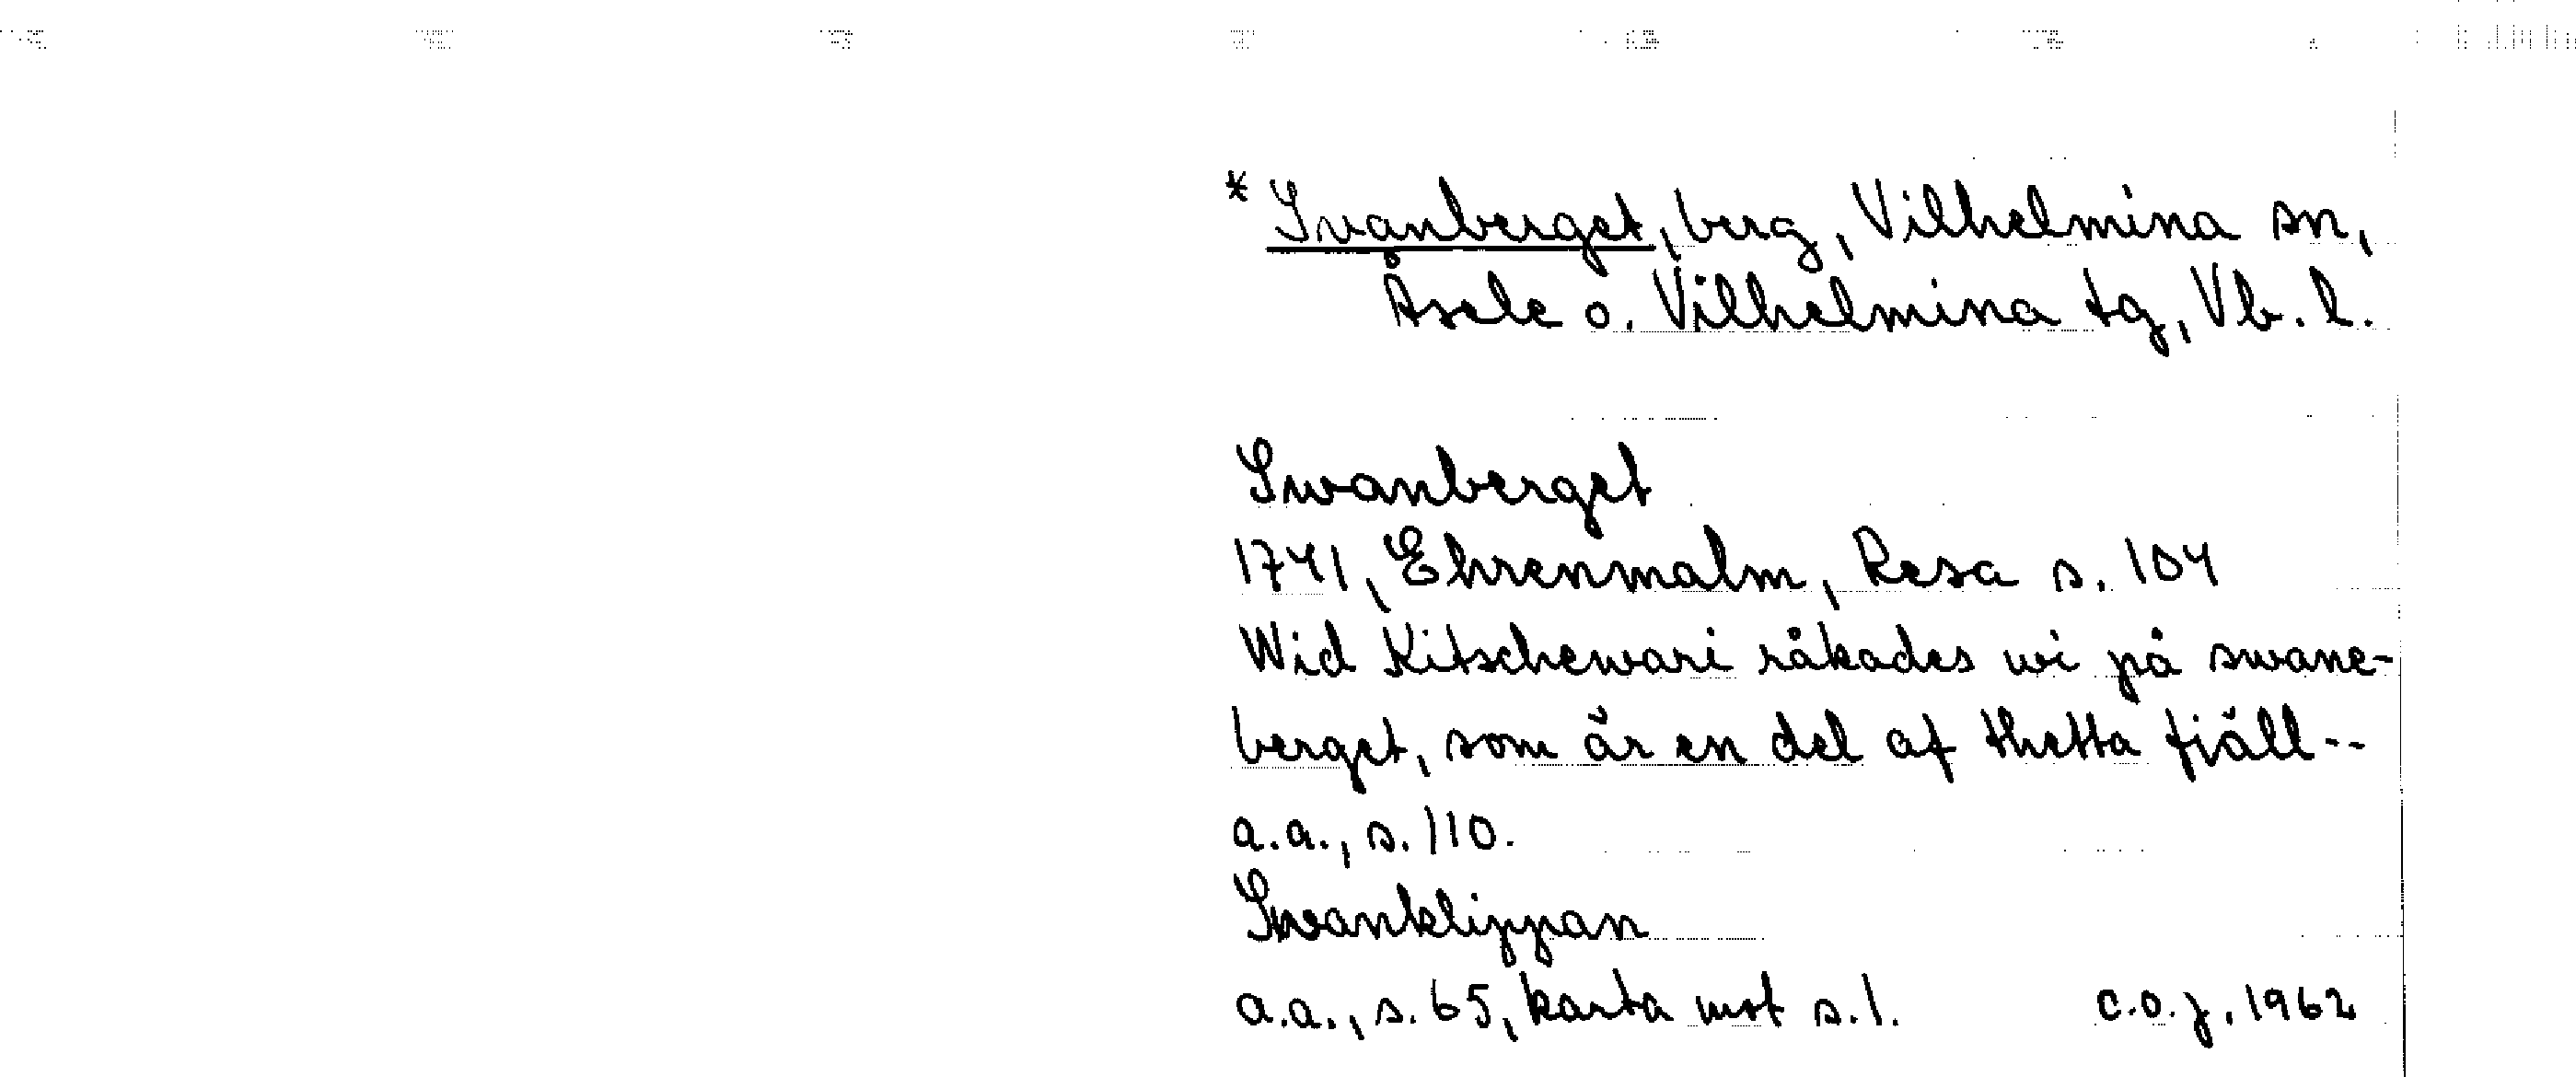 * Svanberget, berg, Vilhelmina sn,
Åsele o. Vilhelmina tg, Vb. l.
Swanberget
1741, Ehrenmalm, Resa s. 104
Wid Kitschewari råkades wi på swane-
berget, som är en del af thetta fjäll--
a.a., s. 110.
Swanklippan
a.a., s. 65, karta mot s. 1. c.o.j. 1962